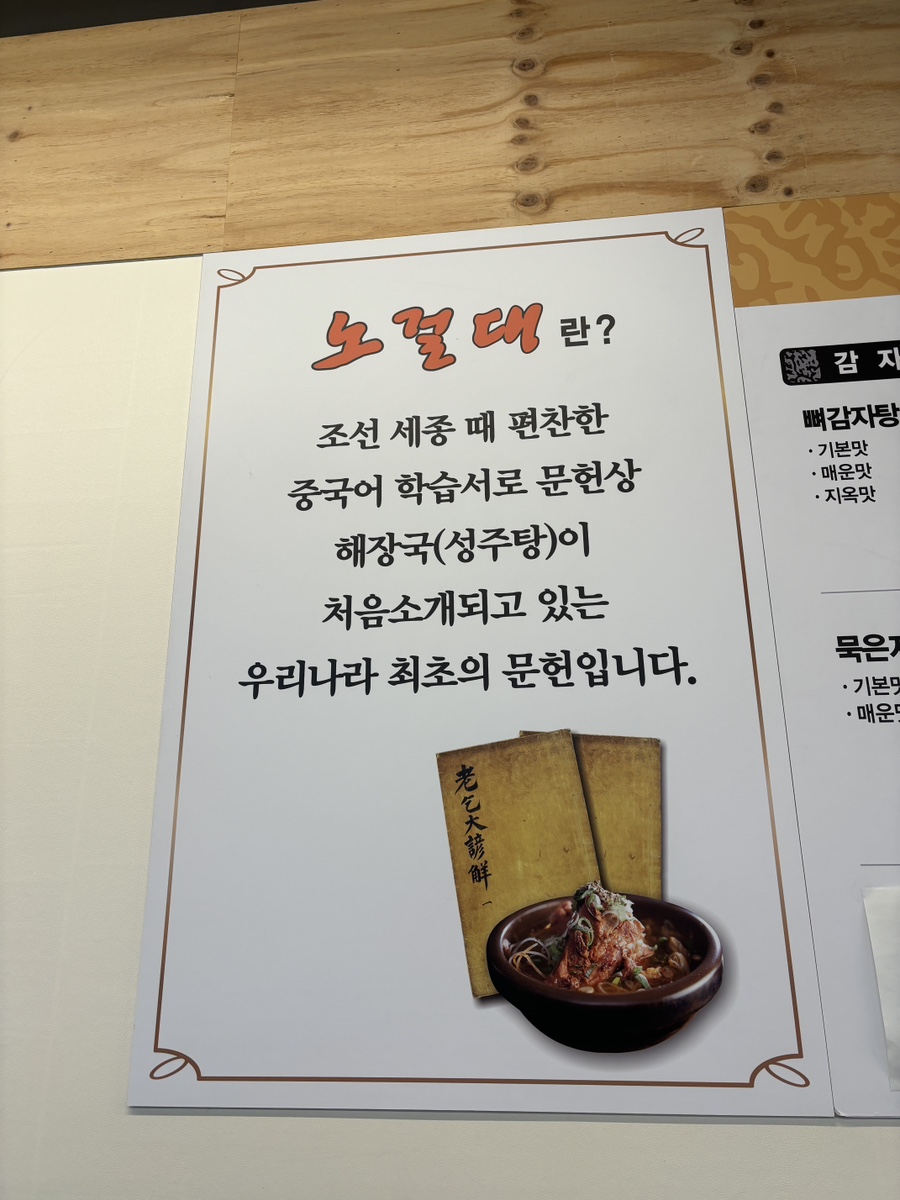 노걸대란?
조선 세종 때 편찬한
중국어 학습서로 문헌상
해장국(성주탕)이
처음소개되고 있는
우리나라 최초의 문헌입니다.
老乞大諺解 一
감 자
뼈감자탕
· 기본맛
· 매운맛
· 지옥맛
묵은
· 기본맛
· 매운맛